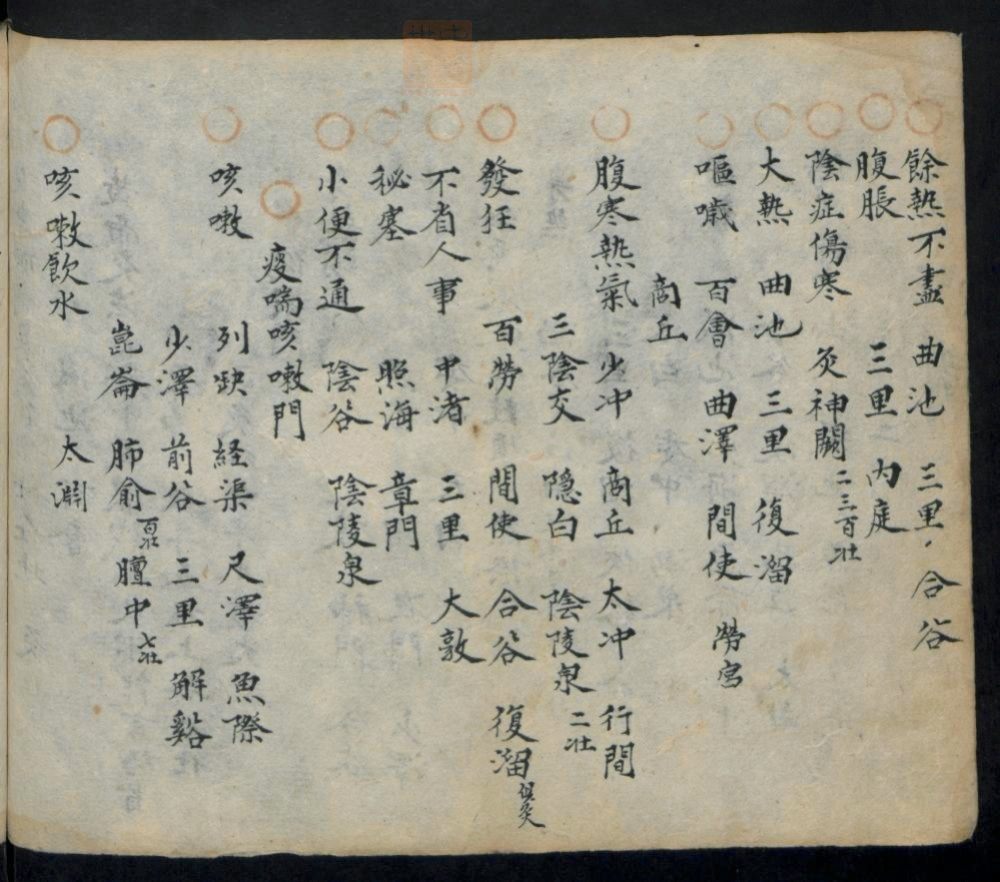 餘熱不盡 曲池 三里 合谷
腹脹 三里 內庭
陰症傷寒 灸神闕二三百壯
大熱 曲池 三里 復溜
嘔噦 百會 曲澤 間使 勞宮
商丘
腹寒熱氣 少冲 商丘 太冲 行間
三陰交 隠白 陰陵泉二壯
發狂 百勞 間使 合谷 復溜俱灸
不省人事 中渚 三里 大敦
秘塞 照海 章門
小便不通 陰谷 陰陵泉
痰喘咳嗽門
咳嗽 列缺 経渠 尺澤 魚際
少澤 前谷 三里 解谿
崑崙 肺俞百壯 膻中七壯
咳嗽飲水 太淵